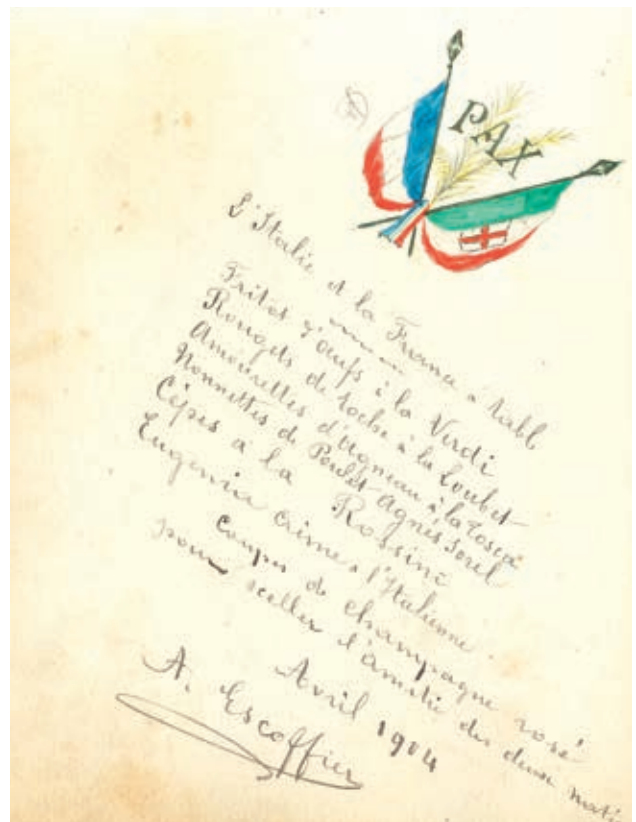 PAX
L'Italie et la France à Table
Fritot d'œufs à la Verdi
Rougets de roche à la Loubet
Amourettes d'Agneau à la Tosca
Nonnettes de Poulet Agnès Sorel
Cèpes à la Rossini
Eugenia crème à l'Italienne.
Coupes de Champagne rosé
pour sceller l'amitié des deux nati
Avril 1904
A. Escoffier